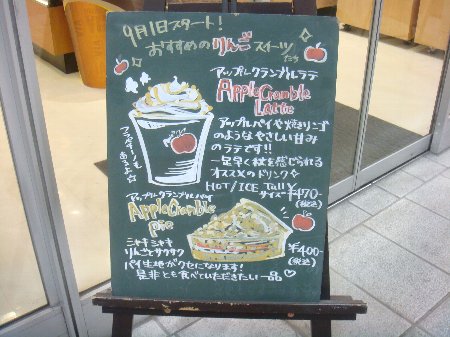 9月1日スタート！
おすすめの りんご スイーツたち
アップルクランブルラテ
Apple Cramble
Latte
アップルパイや焼きリンゴ
のようなやさしい甘み
のラテです!!
一足早く秋を感じられる
オススメのドリンク
フラペチーノもあるよ☆
HOT/ICE Tallサイズ ¥470-
(税込)
アップルクランブルパイ
Apple Cramble
pie
シャキシャキ
りんごとサクサク
パイ生地がクセになります！
是非とも食べていただきたい一品♡
¥400-
(税込)